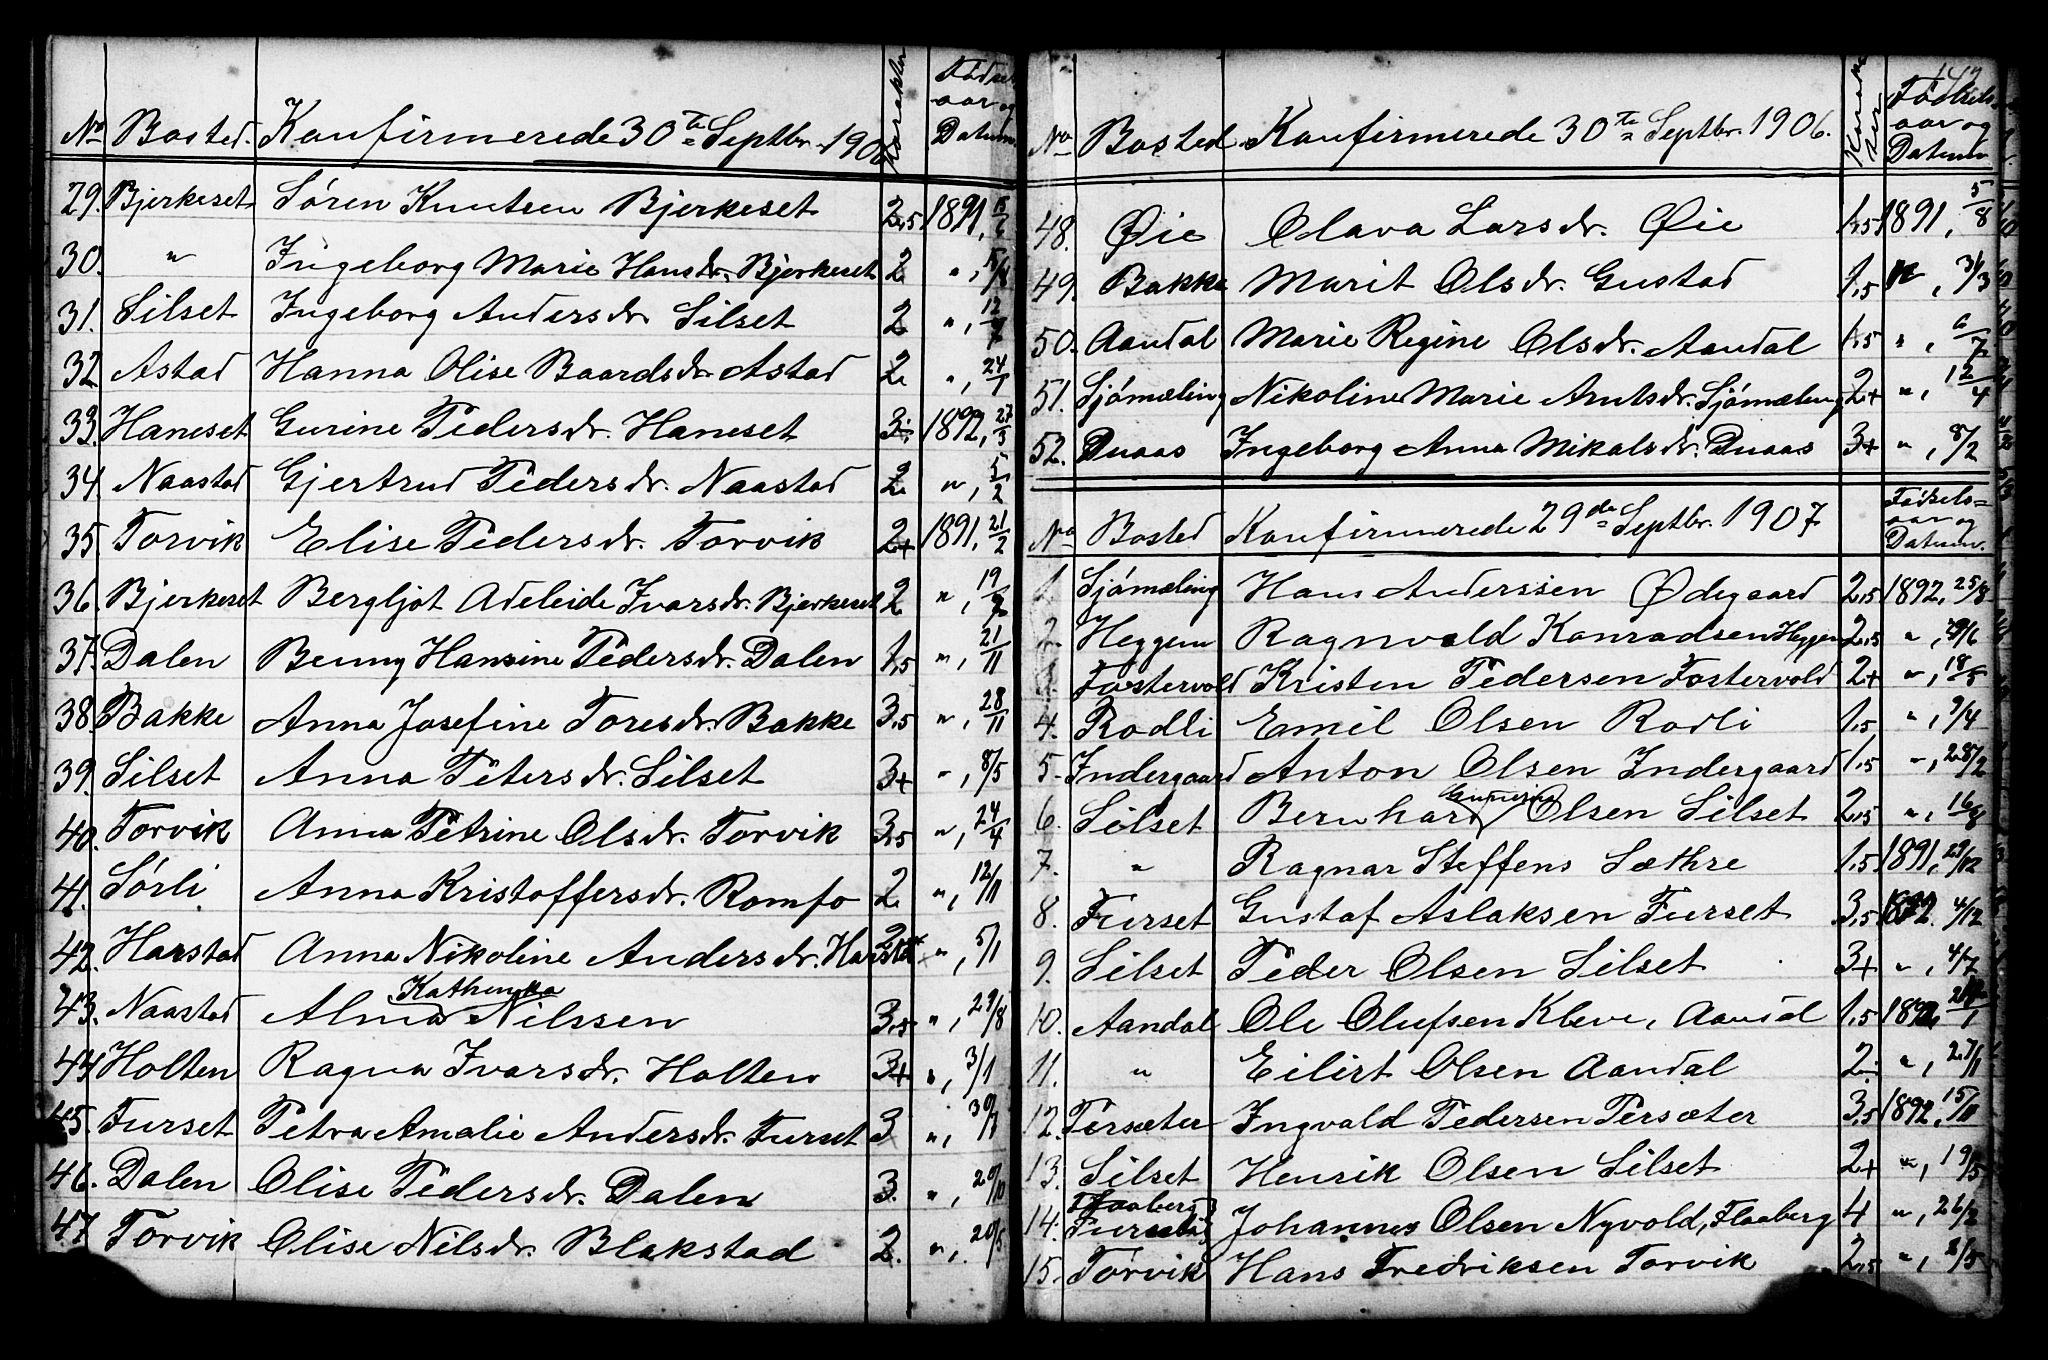 No Bosted. Konfirmerede 30te Septbr. 1906 Karakter Fødsels aar og Datum.
29. Bjerkeset Søren Knutsen Bjerkeset 2,5 1891, 15/6
30. " Ingeborg Marie Hansdr. Bjerkeset 2 ", 5/8
31. Silset Ingeborg Andersdr. Silset 2 ", 12/7
32. Astad Hanna Olise Baardsdr. Astad 2. ", 24/1
33. Haneset Gurine Pedersdr. Haneset 3. 1892, 27/3
34. Naastad Gjertrud Pedersdr. Naastad 2. ", 5/2
35. Torvik Elise Pedersdr. Torvik 2+ 1891, 21/2
36. Bjerkeset Bergljot Adeleide Ivarsdr. Bjerkeset 2 ", 19/7
37. Dalen Benny Hansine Pedersdr. Dalen 1,5 ", 21/11
38. Bakke Anna Josefine Toresdr. Bakke 3,5 ", 28/11
39. Silset Anna Petersdr. Silset 3+ ", 8/5
40. Torvik Anna Petrine Olsdr. Torvik 3,5 ", 24/4
41. Sørli Anna Kristoffersdr. Romfo 2. ", 12/11
42. Harstad Anna Nikoline Andersdr. Harstad 2 ", 5/1
Kathinka
43. Naastad Alma Nilssen 3,5 ", 29/8
44. Holten Ragna Ivarsdr. Holten 3+ ", 3/1
45. Furset Petra Amalie Andersdr. Furset 3 ", 30/7
46. Dalen Olise Pedersdr. Dalen 3. ", 20/10
47. Torvik Olise Nilsdr. Blakstad 2. ", 20/5
147
No Bosted Konfirmerede 30te Septbr. 1906. Karakter Fødsels aar og Datum
48. Øie Olava Larsdr. Øie 1,5 1891, 5/8
49. Bakke Marit Olsdr. Gustad 1,5 ", 31/3
50. Aandal Marie Regine Olsdr. Aandal 1,5 ", 6/7
51. Sjømæling Nikoline Marie Arntsdr. Sjømæling 2+ ", 12/4
52. Duaas Ingeborg Anna Mikalsdr. Duaas 3+ ", 8/2
No Bosted Konfirmerede 29de Septbr. 1907 Fødsels- aar og Datum.
1. Sjømæling Hans Anderssen Ødegaard 2,5 1892, 25/8
2. Heggem Ragnvald Konradsen Heggem 2,5 ", 29/6
3. Fostervold Kristen Pedersen Fostervold 2+ ", 18/5
4. Rodli Emil Olsen Rodli 1,5 ", 9/4
5. Indergaard Anton Olsen Indergaard 1,5 ", 28/2
6. Silset Bernhard Olsen Silset 2,5 ", 16/8
7. " Ragnar Steffens Sæthre 1,5 1891, 29/12
8. Furset Gustaf Aslaksen Furset 3,5 1892. 4/12
9. Silset Peder Olsen Silset 3+ ", 4/7
10. Aandal Ole Olufsen Kleve, Aandal 1,5
11. " Eilert Olsen Aandal 2 ", 27/11
12. Persæter Ingvald Pedersen Persæter 3,5 1892, 15/11
13. Silset Henrik Olsen Silset 2+ ", 19/5
Flaaberg
14. Furset Johannes Olsen Nyvold, Flaaberg 4 ", 26/2
15. Torvik Hans Fredriksen Torvik 2,5 ", 2/5